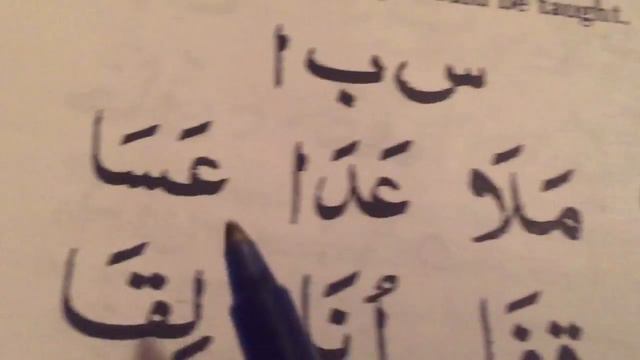 be taught.
س ب ا
مَلَا عَدَا عَسَا
أُنَا لِقَا